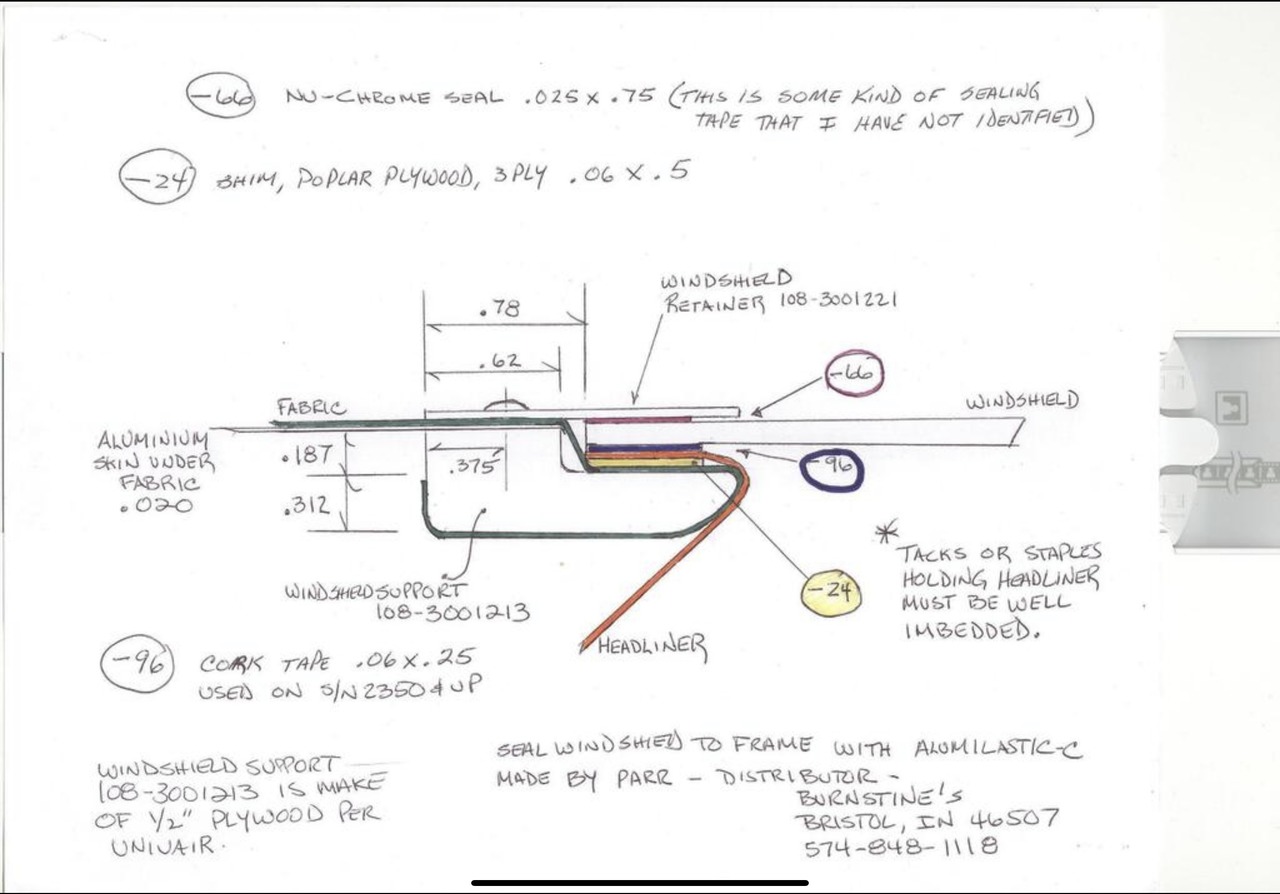 -66 NU-CHROME SEAL .025 X .75 (THIS IS SOME KIND OF SEALING
TAPE THAT I HAVE NOT IDENTIFIED)
-24 SHIM, POPLAR PLYWOOD, 3 PLY .06 X .5
WINDSHIELD
RETAINER 108-3001221
.78
.62
-66
FABRIC
WINDSHIELD
ALUMINIUM
SKIN UNDER
FABRIC
.020
.187
.375
-96
.312
* TACKS OR STAPLES
HOLDING HEADLINER
MUST BE WELL
IMBEDDED.
WINDSHIELD SUPPORT
108-3001213
-24
HEADLINER
-96 CORK TAPE .06 X .25
USED ON S/N 2350 & UP
SEAL WINDSHIELD TO FRAME WITH ALUMILASTIC-C
MADE BY PARR - DISTRIBUTOR -
BURNSTINE'S
BRISTOL, IN 46507
574-848-1118
WINDSHIELD SUPPORT
108-3001213 IS MAKE
OF 1/2" PLYWOOD PER
UNIVAIR.